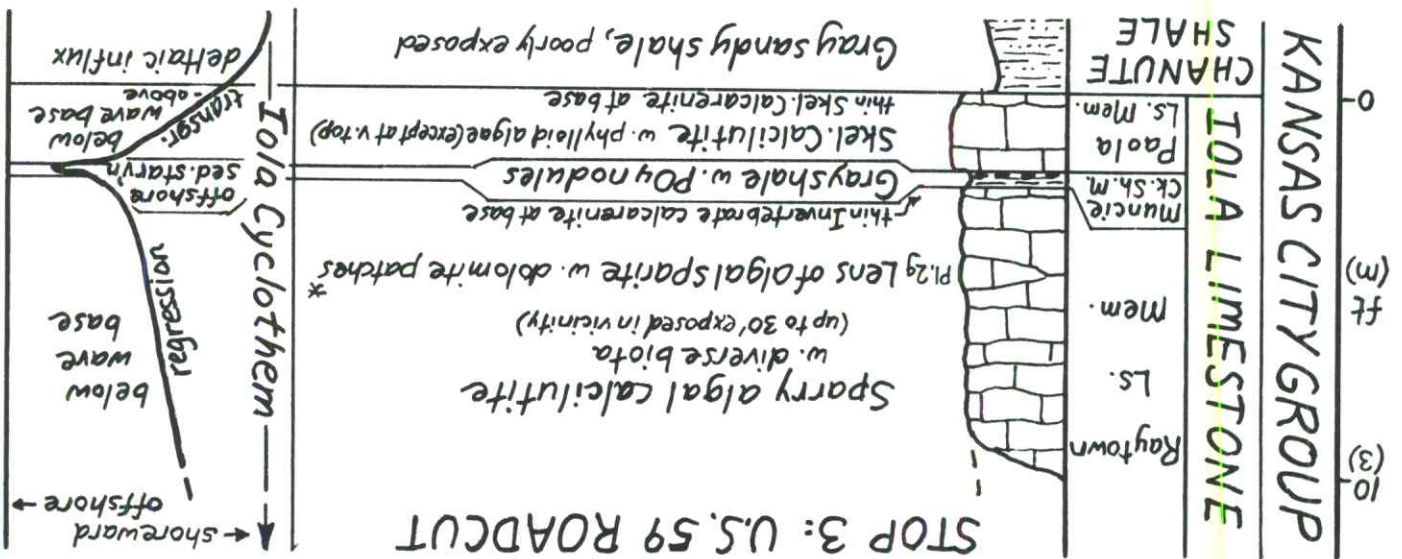 STOP 3: U.S. 59 ROADCUT
← shoreward
offshore →
10
(3)
ft
(m)
0
KANSAS CITY GROUP
IOLA LIMESTONE
CHANUTE
SHALE
Raytown
LS.
Mem.
Muncie
Ck. Sh. M.
Paola
Ls. Mem.
Sparry algal calcilutite
w. diverse biota
(up to 30' exposed in vicinity)
Pl. 2g Lens of algal sparite w. dolomite patches *
thin Invertebrate calcarenite at base
Gray shale w. PO4 nodules
Skel. Calcilutite w. phylloid algae (except at v. top)
thin Skel. Calcarenite at base
Gray sandy shale, poorly exposed
Iola Cyclothem
regression
below
wave
base
offshore
sed. starv'n
transgr.
below
wave base
- above
deltaic influx